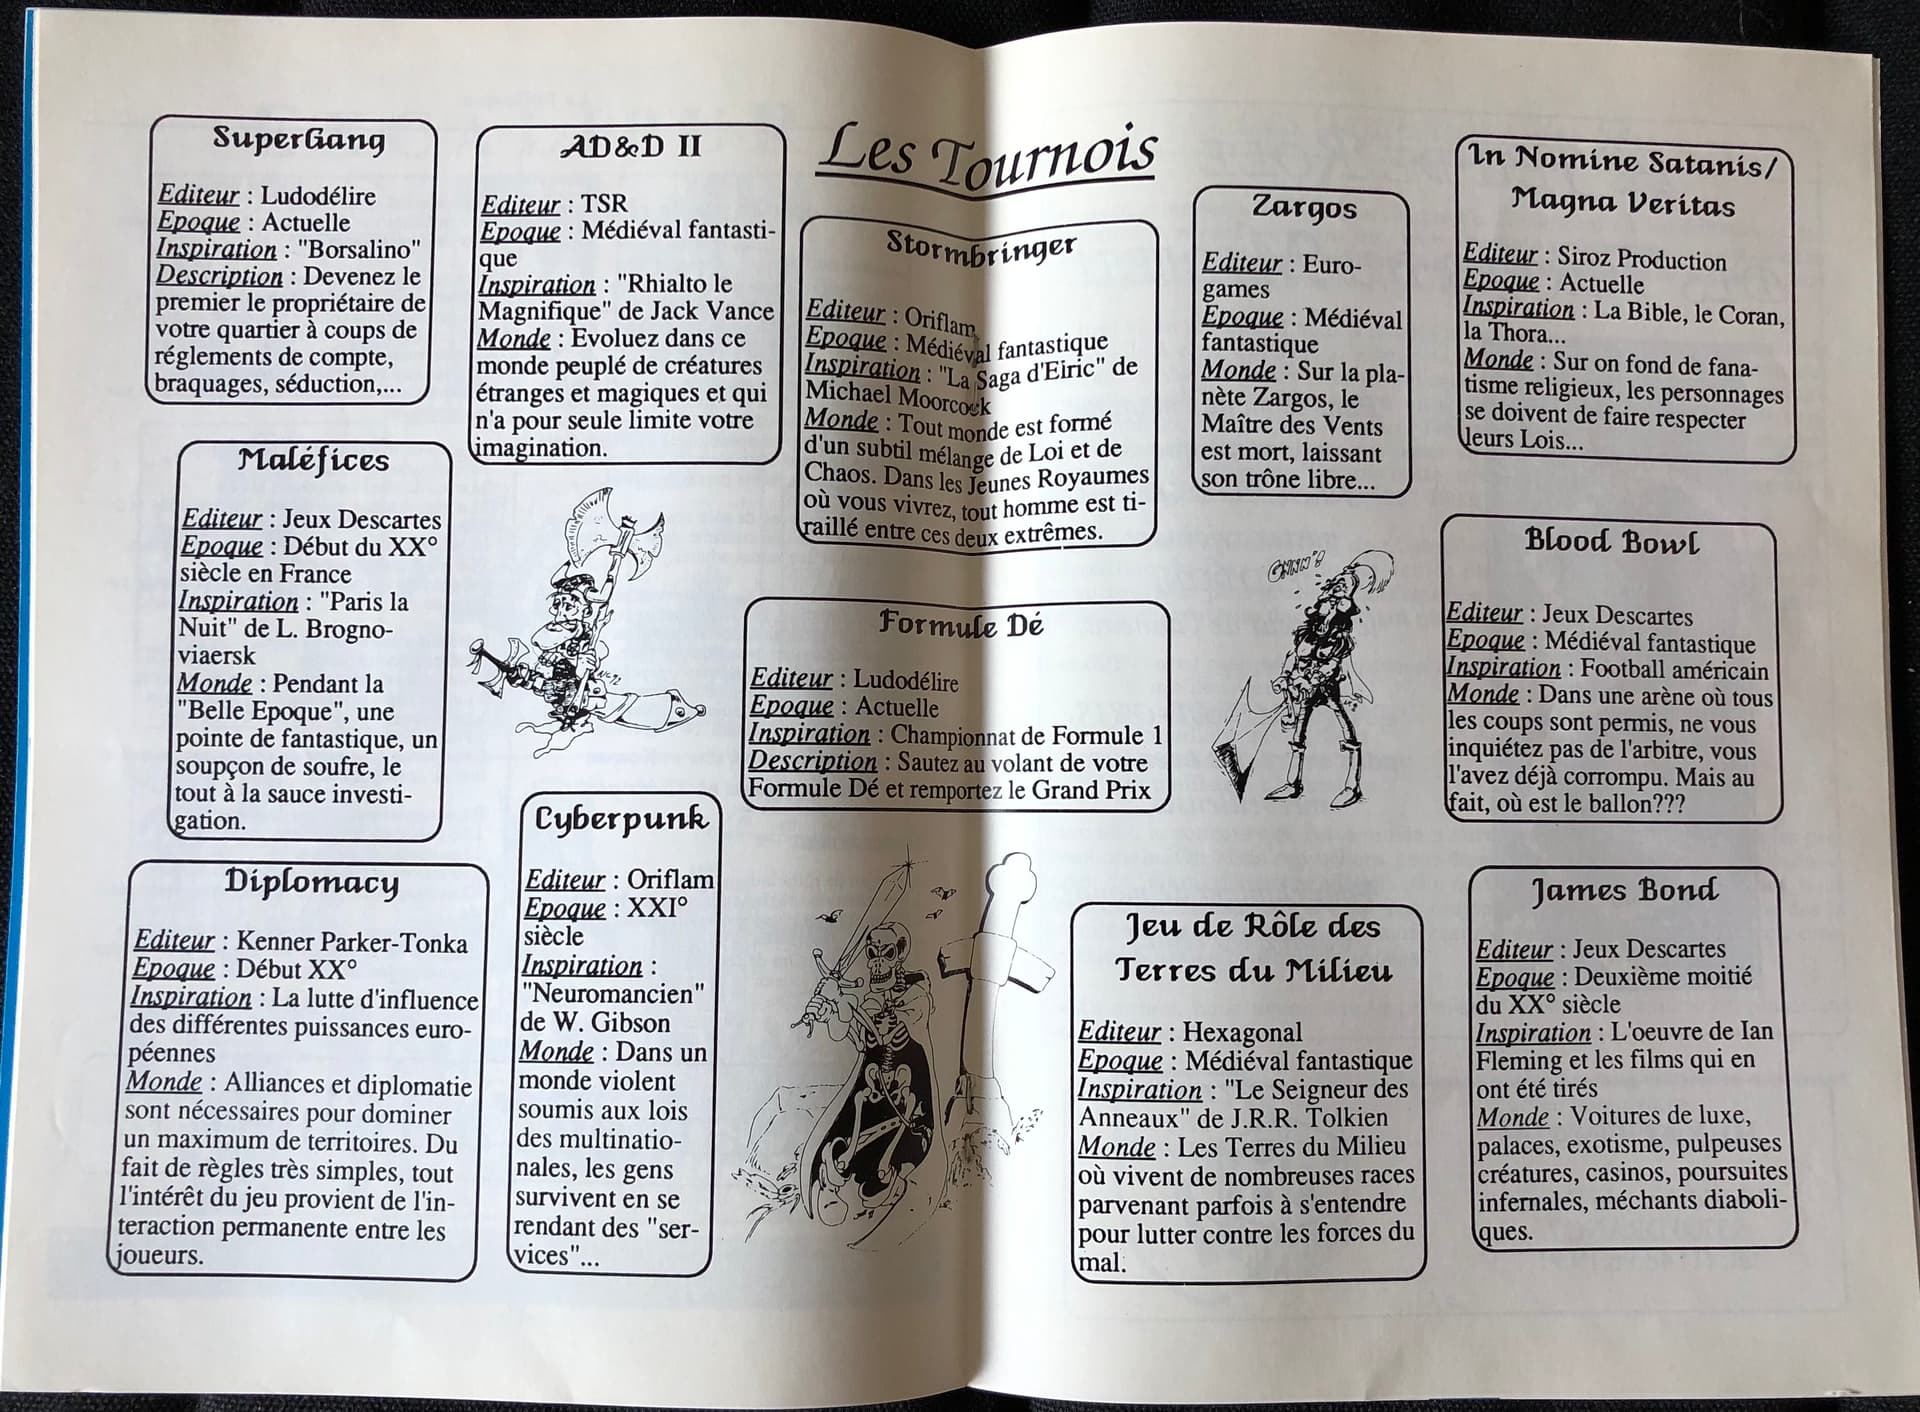 Les Tournois
SuperGang
Editeur : Ludodélire
Epoque : Actuelle
Inspiration : "Borsalino"
Description : Devenez le
premier le propriétaire de
votre quartier à coups de
réglements de compte,
braquages, séduction,...
AD&D II
Editeur : TSR
Epoque : Médiéval fantasti-
que
Inspiration : "Rhialto le
Magnifique" de Jack Vance
Monde : Evoluez dans ce
monde peuplé de créatures
étranges et magiques et qui
n'a pour seule limite votre
imagination.
Stormbringer
Editeur : Oriflam
Epoque : Médiéval fantastique
Inspiration : "La Saga d'Eiric" de
Michael Moorcock
Monde : Tout monde est formé
d'un subtil mélange de Loi et de
Chaos. Dans les Jeunes Royaumes
où vous vivrez, tout homme est ti-
raillé entre ces deux extrêmes.
Zargos
Editeur : Euro-
games
Epoque : Médiéval
fantastique
Monde : Sur la pla-
nète Zargos, le
Maître des Vents
est mort, laissant
son trône libre...
In Nomine Satanis/
Magna Veritas
Editeur : Siroz Production
Epoque : Actuelle
Inspiration : La Bible, le Coran,
la Thora...
Monde : Sur on fond de fana-
tisme religieux, les personnages
se doivent de faire respecter
leurs Lois...
Maléfices
Editeur : Jeux Descartes
Epoque : Début du XX°
siècle en France
Inspiration : "Paris la
Nuit" de L. Brogno-
viaersk
Monde : Pendant la
"Belle Epoque", une
pointe de fantastique, un
soupçon de soufre, le
tout à la sauce investi-
gation.
Formule Dé
Editeur : Ludodélire
Epoque : Actuelle
Inspiration : Championnat de Formule 1
Description : Sautez au volant de votre
Formule Dé et remportez le Grand Prix
GNNN'!
Blood Bowl
Editeur : Jeux Descartes
Epoque : Médiéval fantastique
Inspiration : Football américain
Monde : Dans une arène où tous
les coups sont permis, ne vous
inquiétez pas de l'arbitre, vous
l'avez déjà corrompu. Mais au
fait, où est le ballon???
Diplomacy
Editeur : Kenner Parker-Tonka
Epoque : Début XX°
Inspiration : La lutte d'influence
des différentes puissances euro-
péennes
Monde : Alliances et diplomatie
sont nécessaires pour dominer
un maximum de territoires. Du
fait de règles très simples, tout
l'intérêt du jeu provient de l'in-
teraction permanente entre les
joueurs.
Cyberpunk
Editeur : Oriflam
Epoque : XXI°
siècle
Inspiration :
"Neuromancien"
de W. Gibson
Monde : Dans un
monde violent
soumis aux lois
des multinatio-
nales, les gens
survivent en se
rendant des "ser-
vices"...
Jeu de Rôle des
Terres du Milieu
Editeur : Hexagonal
Epoque : Médiéval fantastique
Inspiration : "Le Seigneur des
Anneaux" de J.R.R. Tolkien
Monde : Les Terres du Milieu
où vivent de nombreuses races
parvenant parfois à s'entendre
pour lutter contre les forces du
mal.
James Bond
Editeur : Jeux Descartes
Epoque : Deuxième moitié
du XX° siècle
Inspiration : L'oeuvre de Ian
Fleming et les films qui en
ont été tirés
Monde : Voitures de luxe,
palaces, exotisme, pulpeuses
créatures, casinos, poursuites
infernales, méchants diaboli-
ques.